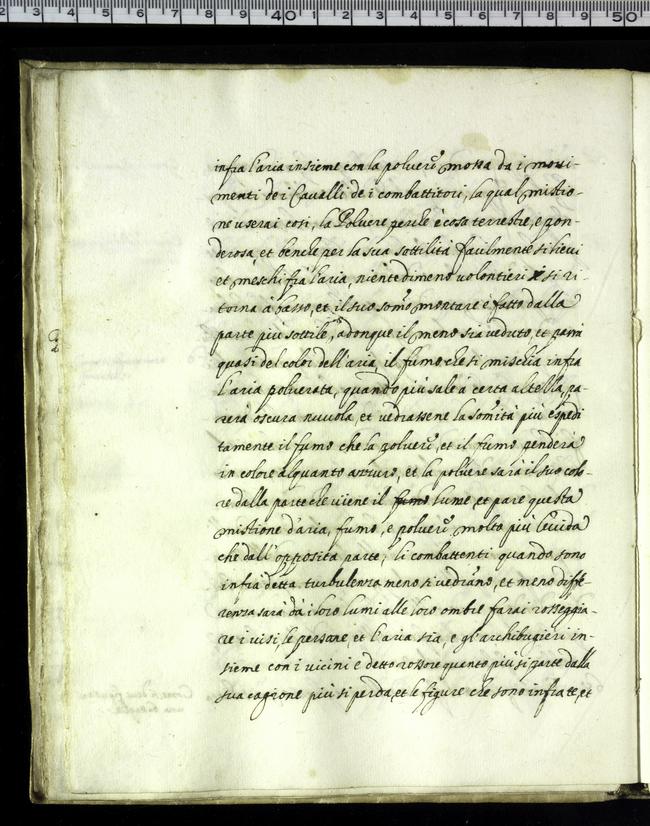 infra l'aria insieme con la polvere mossa da i movi-
menti de i Cavalli de i combattitori, la qual mistio-
ne userai cosi, la Polvere perche è cosa terrestre, e pon-
derosa, et benche per la sua sottilità facilmente si lievi
et meschi frà l'aria, nientedimeno volontieri si ri-
torna à basso, et il suo somo montare è fatto dalla
parte più sottile, adonque il meno sia veduto, et parrà
quasi del color dell'aria, il fumo che si mischia infra
l'aria polverata, quando più sale a certa altezza, pa-
rerà oscura nuvola, et vedrassene la somità più espedi
tamente il fumo che la polvere, et il fumo penderà
in colore alquanto azurro, et la polvere sarà il suo colo-
re dalla parte che viene il fumo lume, et pare questa
mistione d'aria, fumo, e polvere molto più lucida
che dall'opposita parte, li combattenti quando sono
infrà detta turbulenza meno si vedrano, et meno diffe-
renza sarà dà i loro lumi alle loro ombre farai rosseggia-
re i visi, le persone, et l'aria sia, e gl'archibugieri in-
sieme con i vicini è detto rossore quanto più si parte dalla
sua cagione più si perda, et le figure che sono infra te, et